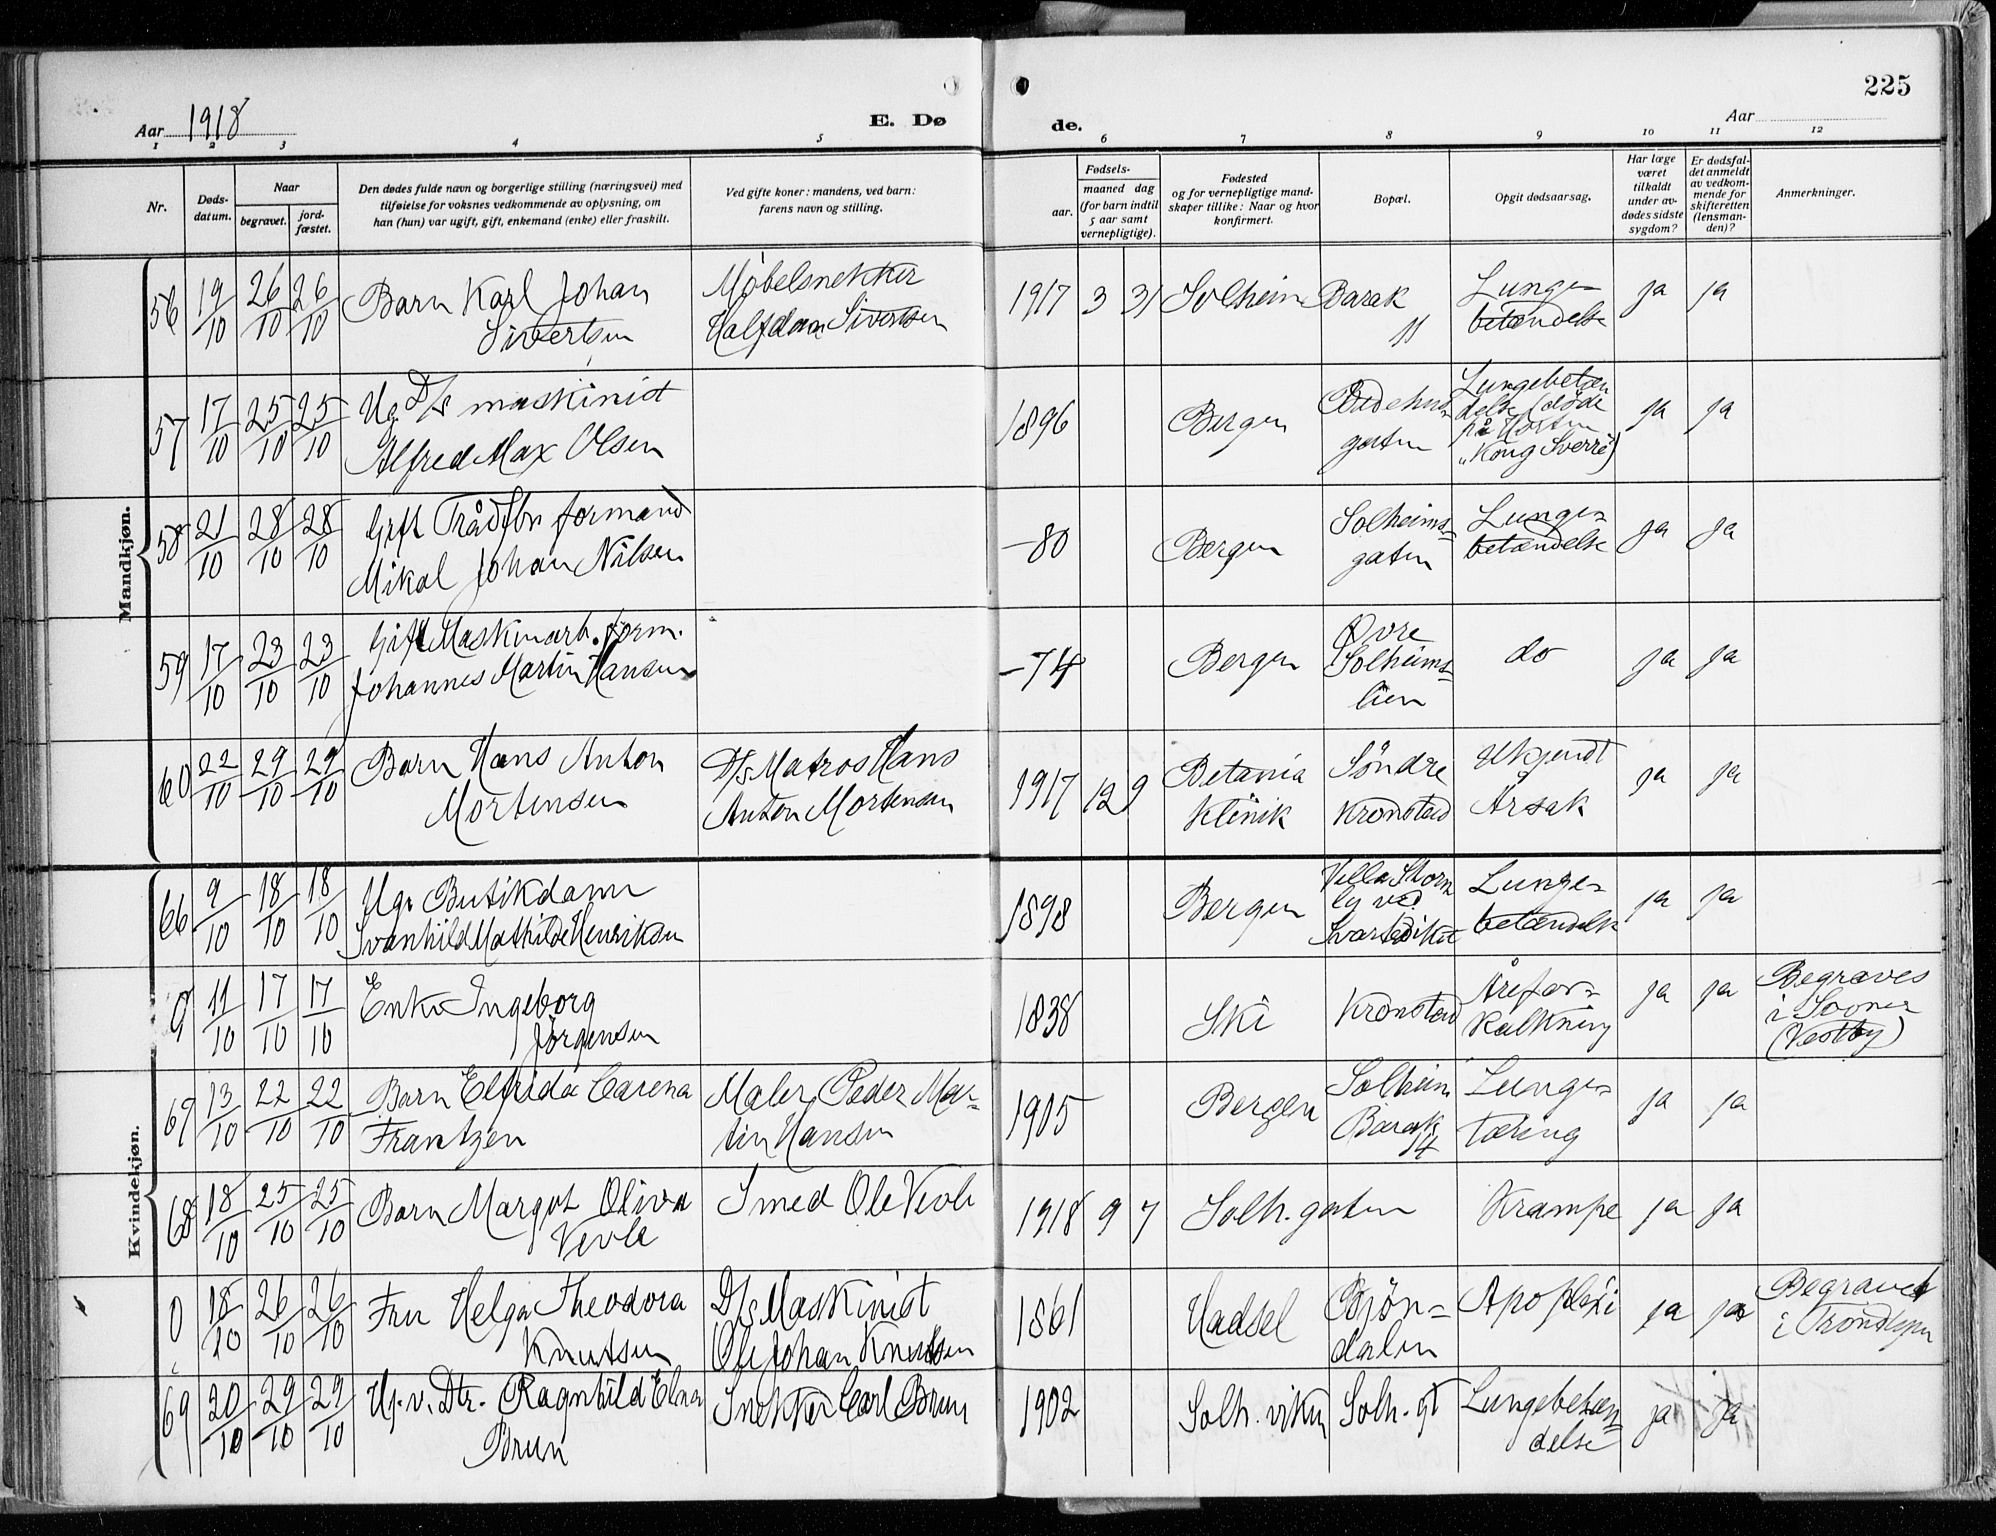 225
Aar 1918
E. Dø
de.
Aar
1 2 3 4 5 6 7 8 9 10 11 12
Nr.
Døds-
datum.
Naar
begravet.
jord-
fæstet.
Den dødes fulde navn og borgerlige stilling (næringsvei) med
tilføielse for voksnes vedkommende av oplysning, om
han (hun) var ugift, gift, enkemand (enke) eller fraskilt.
Ved gifte koner: mandens, ved barn:
farens navn og stilling.
Fødsels-
aar.
maaned dag
(for barn indtil
5 aar samt
vernepligtige).
Fødested
og for vernepligtige mand-
skaper tillike: Naar og hvor
konfirmert.
Bopæl.
Opgit dødsaarsag.
Har læge
været
tilkaldt
under av-
dødes sidste
sygdom?
Er dødsfal-
det anmeldt
av vedkom-
mende for
skifteretten
(lensman-
den)?
Anmerkninger.
Mandkjøn.
56 19/10 26/10 26/10
Barn Karl Johan
Sivertsen
Møbelsnekker
Halfdan Sivertsen
1917 3 31
Solheim
Barak
11
Lunge-
betændelse
ja ja
57 17/10 25/10 25/10
Ug D/s maskinist
Alfred Max Olsen
1896
Bergen
gaten
Lungebetæn
delse (døde
på Horten
"Kong Sverre")
ja ja
58 21/10 28/10 28/10
Gift Trådfbr formand
Mikal Johan Nilsen
-80
Bergen
Solheims-
gaten
Lunge-
betændelse
ja ja
59 17/10 23/10 23/10
Gift Maskinarb. form.
Johannes Martin Hansen
-74
Bergen
Øvre
Solheims-
lien
do
ja ja
60 22/10 29/10 29/10
Barn Hans Anton
Mortensen
D/s Matros Hans
Anton Mortensen
1917 12 9
Betania
Klinik
Söndre
Kronstad
Ukjendt
Årsak
ja ja
Kvindekjøn.
66 9/10 18/10 18/10
Ug. Butikdame
Svanhild Mathilde Henriksen
1898
Bergen
Villa Storm
ly ved
Svartediket
Lunge-
betændelse
ja ja
0 11/10 17/10 17/10
Enke Ingeborg
Jörgensen
1838
Ski
Kronstad
Årefor-
kalkning
ja ja
Begraves
i Sooner
(Vestby)
67 13/10 22/10 22/10
Barn Elfrida Carena
Frantzen
Maler Peder Mar-
tin Hansen
1905
Bergen
Solheim
Barak
14
Lunge-
tæring
ja ja
68 18/10 25/10 25/10
Barn Margot Oliva
Vevle
Smed Ole Vevle
1918 9 7
Solh. gaten
Krampe
ja ja
0 18/10 26/10 26/10
Fru Helga Theodora
Knutsen
D/s Maskinist
Ole Johan Knutsen
1861
Hadsel
Björn-
dalen
Apoplexi
ja ja
Begravet
i Trondhjem
69 20/10 29/10 29/10
Ug. v. Dtr. Ragnhild Elna
Brun
Snekker Carl Brun
1902
Solh. viken
Solh. gt
Lungebetæn-
delse
ja ja